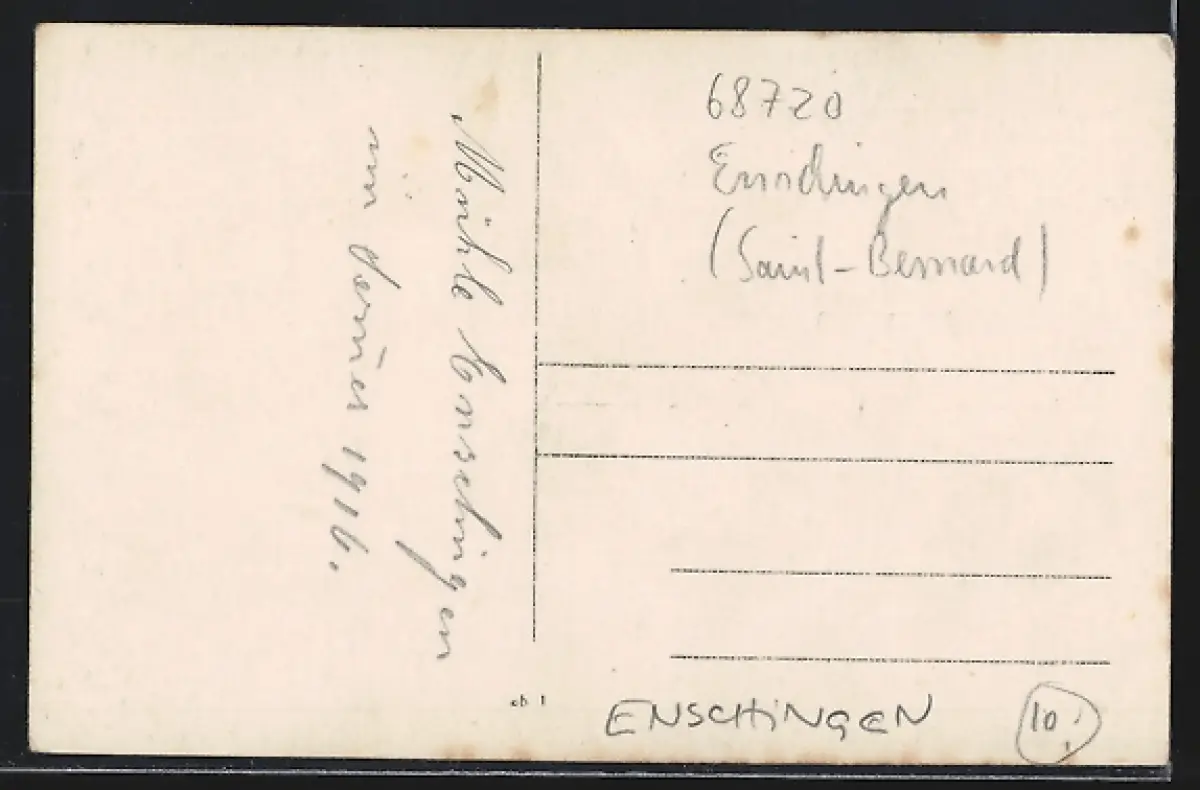 Mühle Enschingen
im Sommer 1916.
68720
Enschingen
(Saint-Bernard)
eb 1
ENSCHINGEN
10,-